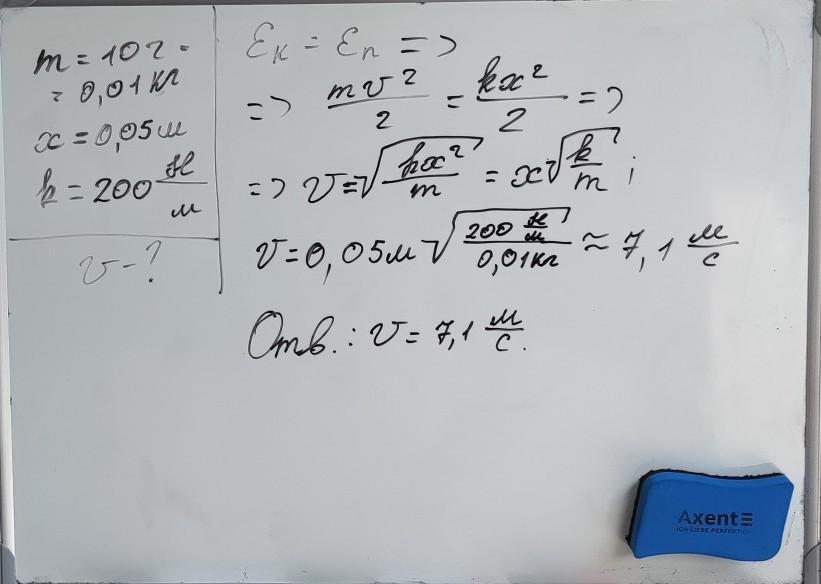 m = 10 г =
= 0,01 кг
x = 0,05 м
k = 200 Н/м
v - ?
Eк = Eп =>
=> mv²/2 = kx²/2 =>
=> v = √(kx²/m) = x√(k/m) ;
v = 0,05 м √(200 Н/м / 0,01 кг) ≈ 7,1 м/с
Отв.: v = 7,1 м/с.
Axent
ICH LIEBE PERFEKTION